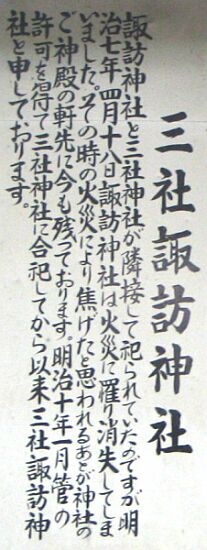 三社諏訪神社
諏訪神社と三社神社が隣接して祀られていたのですが明
治七年四月十八日諏訪神社は火災に罹り消失してしま
いました。その時の火災により焦げたと思われるあとが神社の
ご神殿の軒先に今も残っております。明治十年一月管の
許可を得て三社神社に合祀してから以来三社諏訪神
社と申しております。